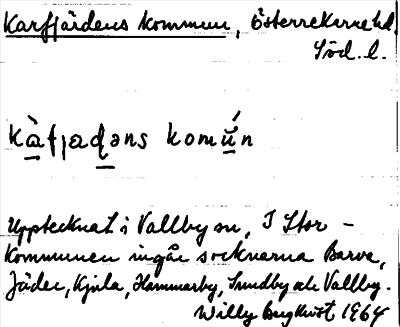 Kafjärdens kommun, Österrekarne hd.
Söd. l.
kàfjaɖəns komún
Upptecknat i Vallby sn, I Stor-
kommunen ingår socknarna Barva,
Jäder, Kjula, Hammarby, Sundby och Vallby.
Willy Bergkvist 1964